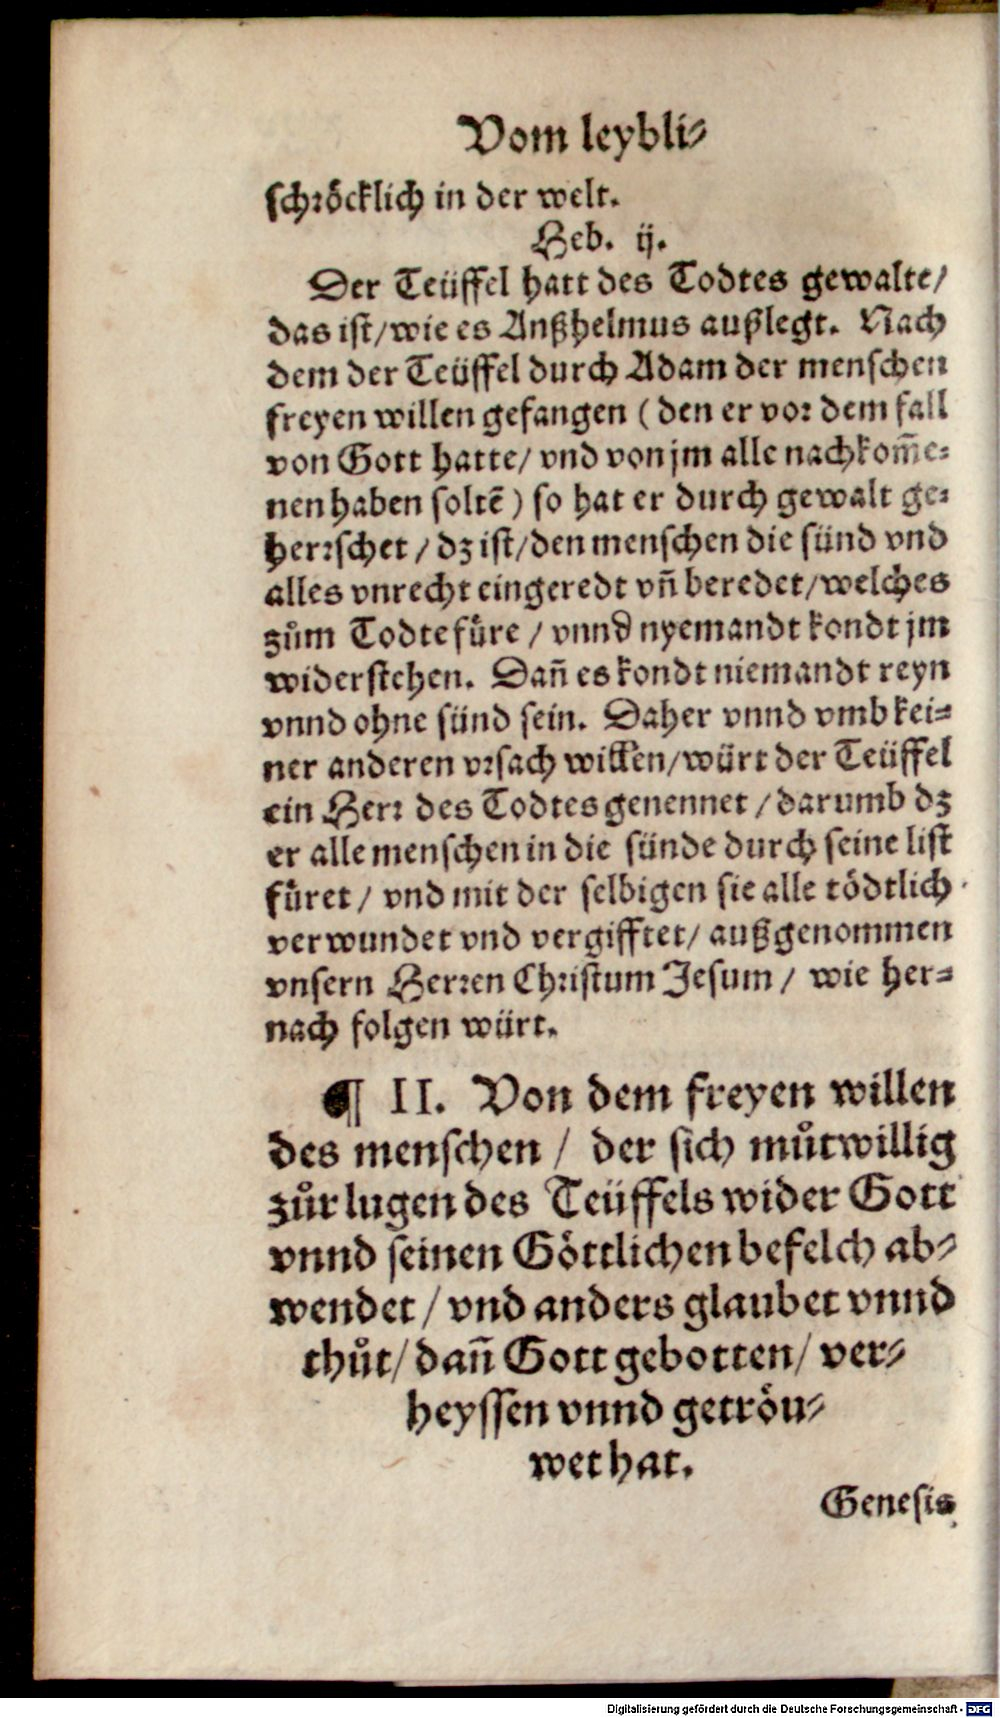 Vom leybli⸗
schröcklich in der welt.
Heb. ij.
Der Teüffel hatt des Todtes gewalte/
das ist/wie es Anßhelmus außlegt. Nach
dem der Teüffel durch Adam der menschen
freyen willen gefangen (den er vor dem fall
von Gott hatte/ vnd von jm alle nachkom̃e⸗
nen haben soltẽ) so hat er durch gewalt ge⸗
herrschet / dz ist/den menschen die sünd vnd
alles vnrecht eingeredt vñ beredet/welches
zům Todte füre / vnnd nyemandt kondt jm
widerstehen. Dañ es kondt niemandt reyn
vnnd ohne sünd sein. Daher vnnd vmb kei⸗
ner anderen vrsach willen/würt der Teüffel
ein Herr des Todtes genennet / darumb dz
er alle menschen in die sünde durch seine list
füret / vnd mit der selbigen sie alle tödtlich
verwundet vnd vergifftet/ außgenommen
vnsern Herren Christum Jesum / wie her⸗
nach folgen würt.
¶ II. Von dem freyen willen
des menschen / der sich můtwillig
zůr lugen des Teüffels wider Gott
vnnd seinen Göttlichen befelch ab⸗
wendet / vnd anders glaubet vnnd
thůt/ dañ Gott gebotten/ ver⸗
heyssen vnnd getröu⸗
wet hat.
Genesis
Digitalisierung gefördert durch die Deutsche Forschungsgemeinschaft - DFG